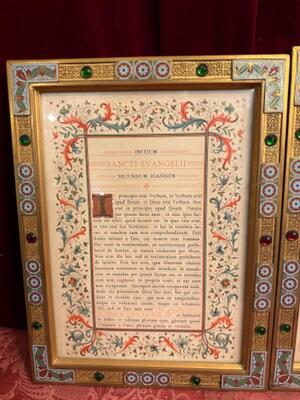 INITIUM
SANCTI EVANGELII
SECUNDUM IOANNEM
In principio erat Verbum, et Verbum erat
apud Deum, et Deus erat Verbum. Hoc
erat in principio apud Deum. Omnia
per ipsum facta sunt: et sine ipso fac-
tum est nihil, quod factum est: in ipso vita erat,
et vita erat lux hominum: et lux in tenebris lu-
cet, et tenebræ eam non comprehenderunt. Fuit
homo missus a Deo, cui nomen erat Joannes.
Hic venit in testimonium, ut testimonium perhi-
beret de lumine, ut omnes crederent per illum.
Non erat ille lux, sed ut testimonium perhiberet
de lumine. Erat lux vera, quæ illuminat omnem
hominem venientem in hunc mundum. In mundo
erat, et mundus per ipsum factus est, et mundus
eum non cognovit. In propria venit, et sui eum
non receperunt. Quotquot autem receperunt eum,
dedit eis potestatem filios Dei fieri, his, qui cre-
dunt in nomine ejus: qui non ex sanguinibus,
neque ex voluntate carnis, neque ex voluntate
viri, sed ex Deo nati sunt.
et habitavit
in nobis: et vidimus gloriam ejus, gloriam quasi
Unigeniti a Patre, plenum gratiæ et veritatis.